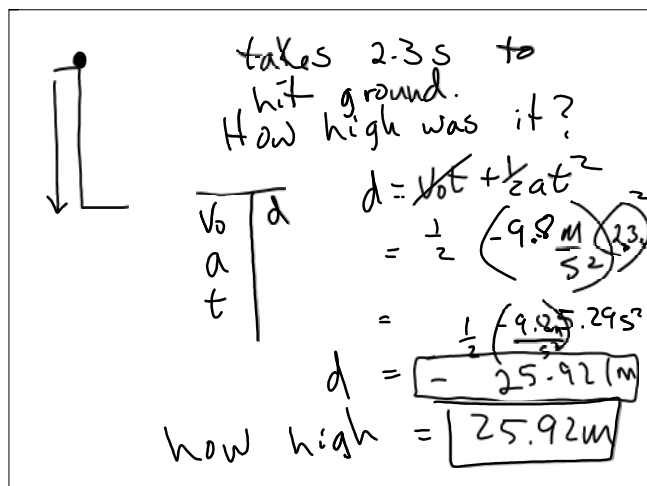 takes 2.3 s to
hit ground.
How high was it?
d = v₀t + ½at²
v₀ d
a
t
= 1/2 (-9.8 m/s²)(2.3)²
= 1/2 (-9.8 m/s²) 5.29s²
d = - 25.921m
how high = 25.92m